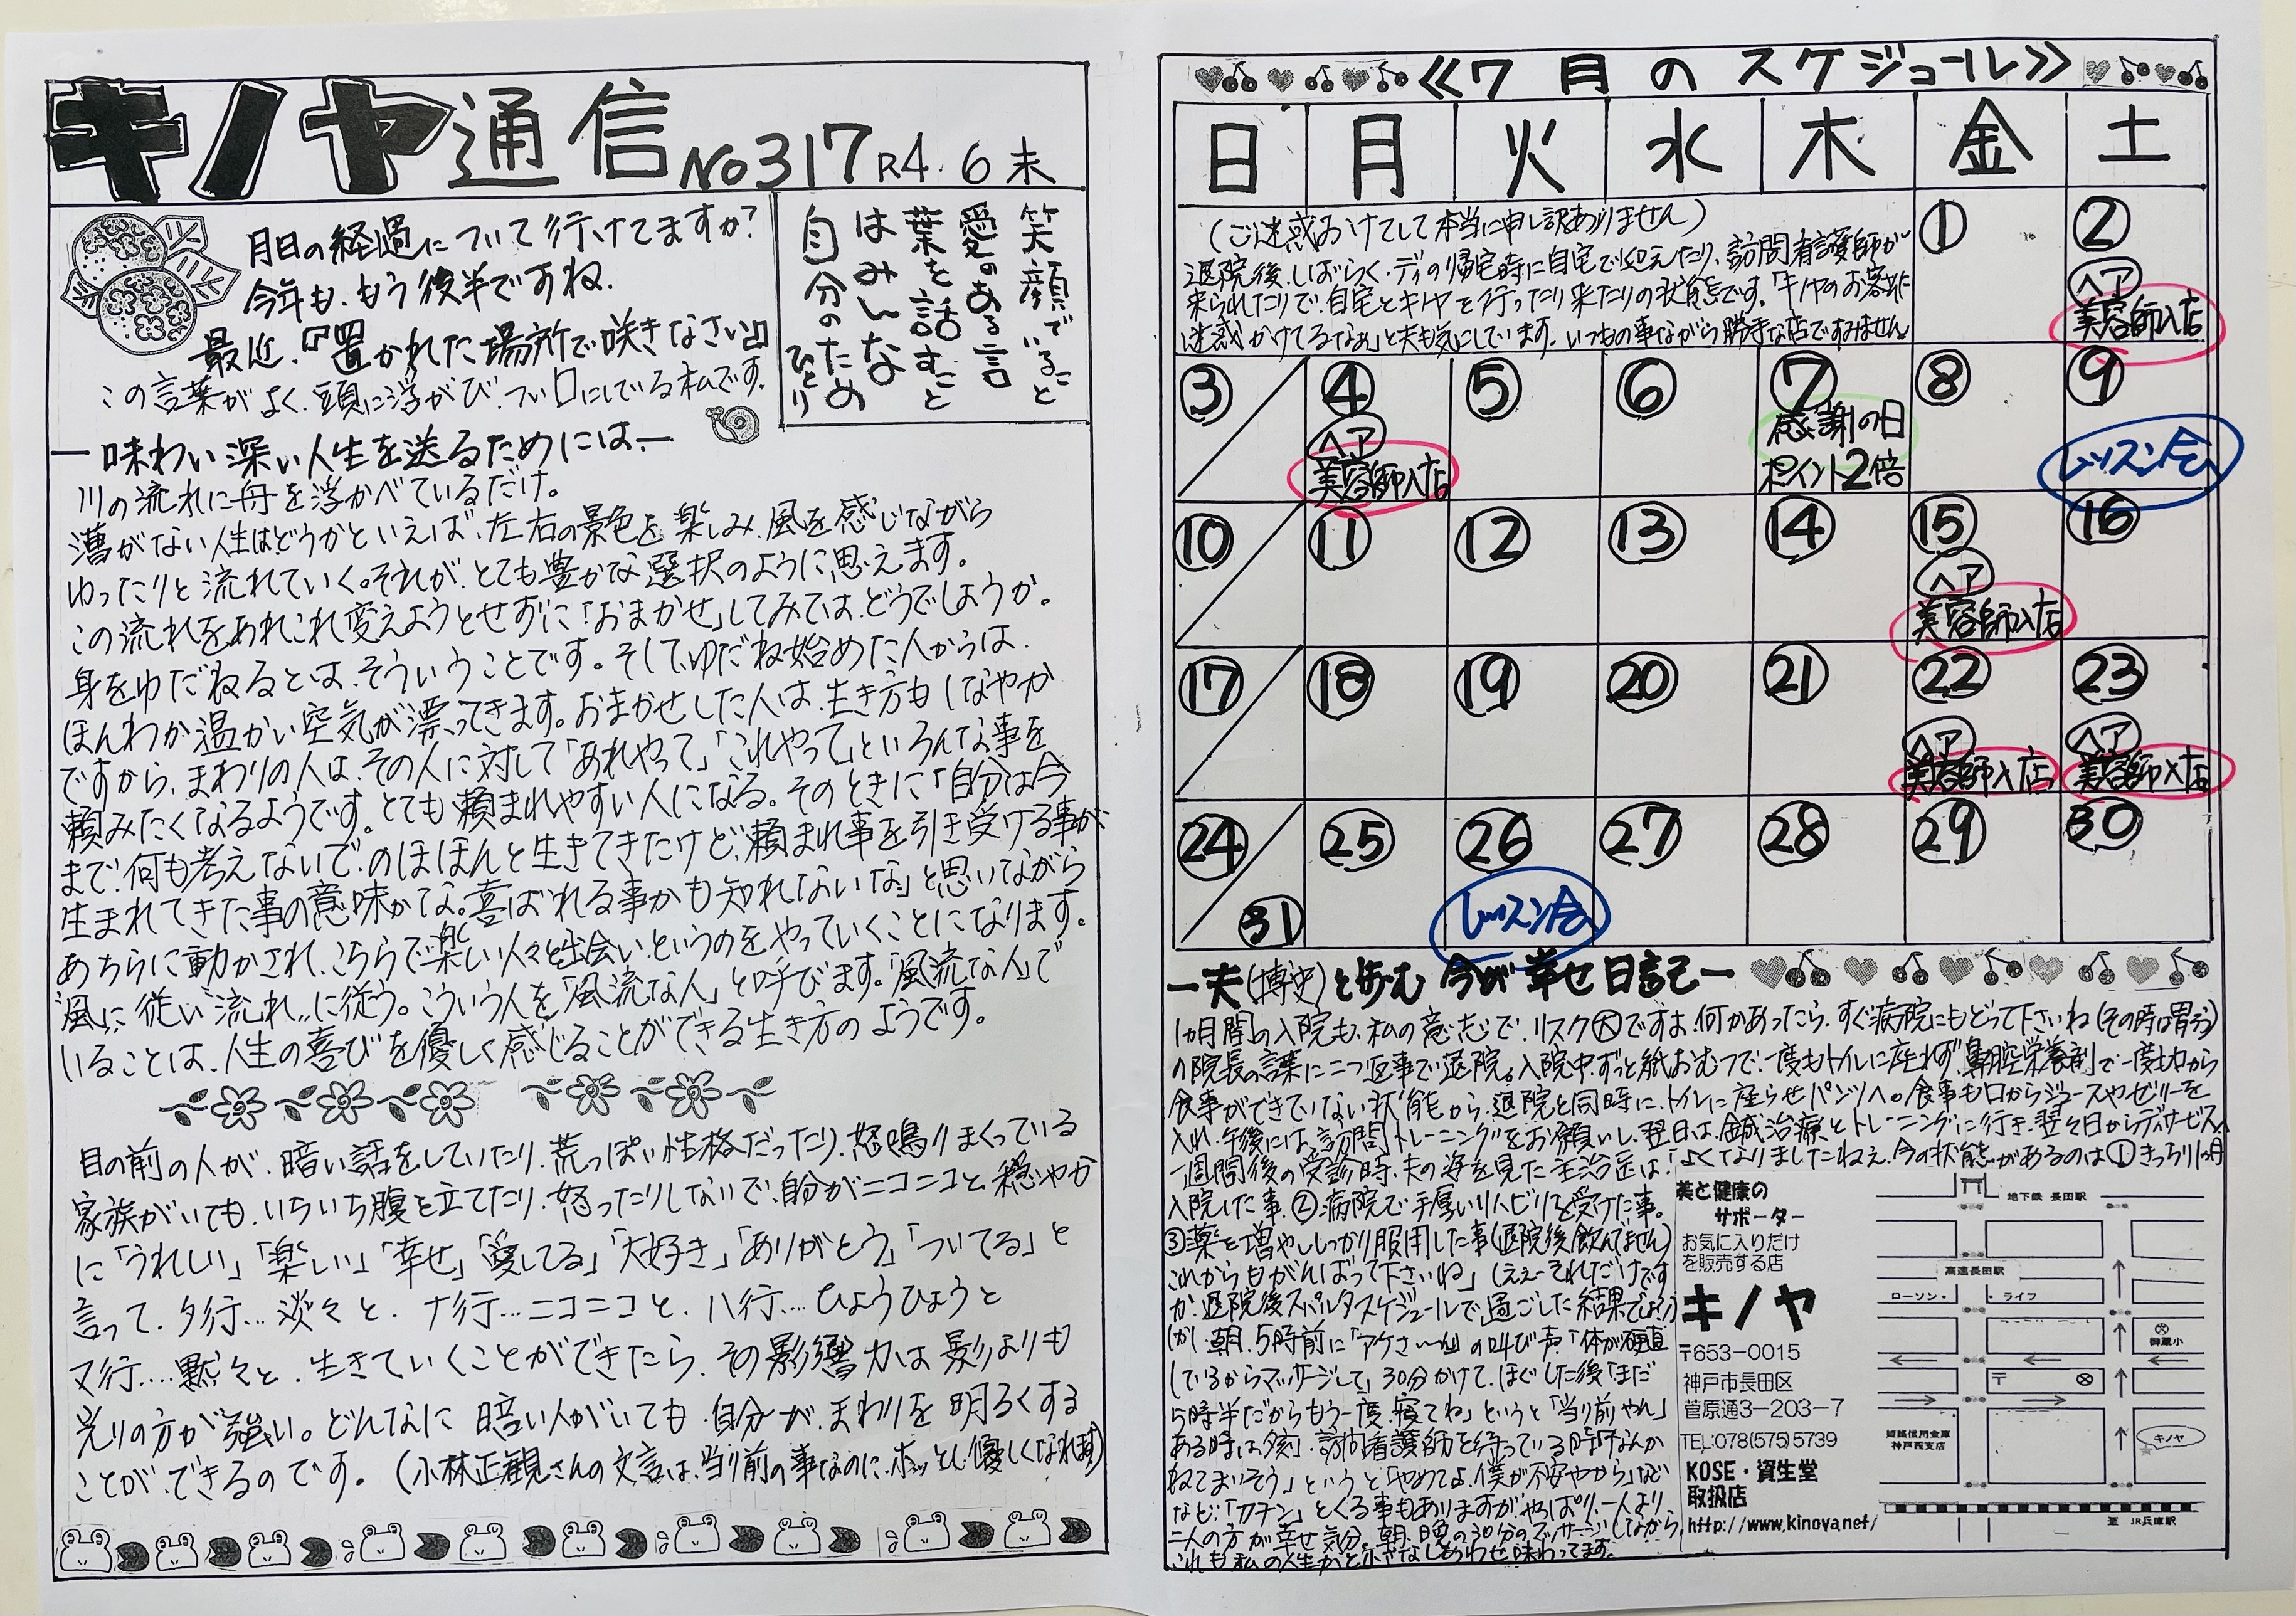 キノヤ通信 No317 R4.6末
月日の経過について行けてますか?
今年も、もう後半ですね。
最近、『置かれた場所で咲きなさい』
この言葉がよく、頭に浮がび、つい口にしている私です。
笑顔でいること
愛のある言
葉を話すこと
はみんな
自分のため
ひとり
ー味わい深い人生を送るためにはー
川の流れに舟を浮かべているだけ。
漕がない人生はどうかといえば、左右の景色を楽しみ、風を感じながら
ゆったりと流れていく。それが、とても豊かな選択のように思えます。
この流れをあれこれ変えようとせずに「おまかせ」してみては、どうでしょうか。
身をゆだねるとは、そういうことです。そして、ゆだね始めた人からは、
ほんわか温かい空気が漂ってきます。おまかせした人は、生き方もしなやか
ですから、まわりの人は、その人に対して「あれやって」「これやって」といろんな事を
頼みたくなるようです。とても頼まれやすい人になる。そのときに「自分は今
まで、何も考えないで、のほほんと生きてきたけど、頼まれ事を引き受ける事が
生まれてきた事の意味かな。喜ばれる事かも知れないな」と思いながら
あちらに動かされ、こちらで楽しい人々と出会い、というのをやっていくことになります。
"風"に従い"流れ"に従う。こういう人を「風流な人」と呼びます。「風流な人」で
いることは、人生の喜びを優しく感じることができる生き方のようです。
目の前の人が、暗い話をしていたり、荒っぽい性格だったり、怒鳴りまくっている
家族がいても、いちいち腹を立てたり、怒ったりしないで、自分がニコニコと、穏やか
に「うれしい」「楽しい」「幸せ」「愛してる」「大好き」「ありがとう」「ついてる」と
言って、タ行…淡々と、ナ行…ニコニコと、ハ行…ひょうひょうと
マ行…黙々と、生きていくことができたら、その影響力は影よりも
光りの方が強い。どんなに暗い人がいても、自分が、まわりを明るくする
ことができるのです。(小林正観さんの文言は、当り前の事なのに、ホッとし、優しくなれます)
≪7月のスケジュール≫
日 月 火 水 木 金 土
(ご迷惑おけてして本当に申し訳ありません)
退院後、しばらく、デイの帰宅時に自宅で迎えたり、訪問看護師が
来られたりで、自宅とキノヤを行ったり来たりの状態です。「キノヤのお客様に
迷惑かけてるなぁ」と夫も気にしています。いつもの事ながら勝手な店ですみません
① ②
ヘア
美容師入店
③ ④ ⑤ ⑥ ⑦ ⑧ ⑨
ヘア
美容師入店
感謝の日
ポイント2倍
レッスン会
⑩ ⑪ ⑫ ⑬ ⑭ ⑮ ⑯
ヘア
美容師入店
⑰ ⑱ ⑲ ⑳ ㉑ ㉒ ㉓
ヘア
美容師入店
ヘア
美容師入店
㉔ ㉕ ㉖ ㉗ ㉘ ㉙ ㉚
㉛
レッスン会
ー夫(博史)と歩む 今が幸せ日記ー
1ヵ月間の入院も、私の意志で、リスク大ですよ、何かあったら、すぐ病院にもどって下さいね(その時は胃ろう)
の院長の言葉に二つ返事で退院。入院中、ずっと紙おむつで、一度もトイレに座れず、鼻腔栄養剤で一度も口から
食事ができていない状態から、退院と同時に、トイレに座らせパンツへ。食事も口からジュースやゼリーを
入れ、午後には、訪問トレーニングをお願いし、翌日は、鍼治療とトレーニングに行き、翌々日からデイサービスへ
一週間後の受診時、夫の姿を見た主治医は、「よくなりましたねぇ、今の状態があるのは①きっちり1ヵ月
入院した事、②病院で手厚いリハビリを受けた事。
③薬を増やししっかり服用した事(退院後、飲んでません)
これからもがんばって下さいね」(ええーそれだけです
か、退院後スパルタスケジュールで過ごした結果でしょう)
しかし、朝、5時前に「アケさ〜ん」の叫び声、「体が硬直
しているからマッサージして」30分かけて、ほぐした後「まだ
5時半だからもう一度、寝てね」というと「当り前やん」
ある時は、夕刻、訪問看護師を待っている時「なんか
ねてまいそう」というと「やめてよ、僕が不安やから」など
など、「カチン」とくる事もありますが、やっぱり、一人より、
二人の方が幸せ気分。朝、晩の30分のマッサージしながら、
これも私の人生かと小さなしあわせ味わってます。
美と健康の
サポーター
お気に入りだけ
を販売する店
キノヤ
〒653-0015
神戸市長田区
菅原通3-203-7
TEL:078(575)5739
KOSE・資生堂
取扱店
http://www.kinoya.net/
地下鉄 長田駅
高速長田駅
ローソン・ ・ライフ
御蔵小
〒
姫路信用金庫
神戸西支店
キノヤ
至 JR兵庫駅